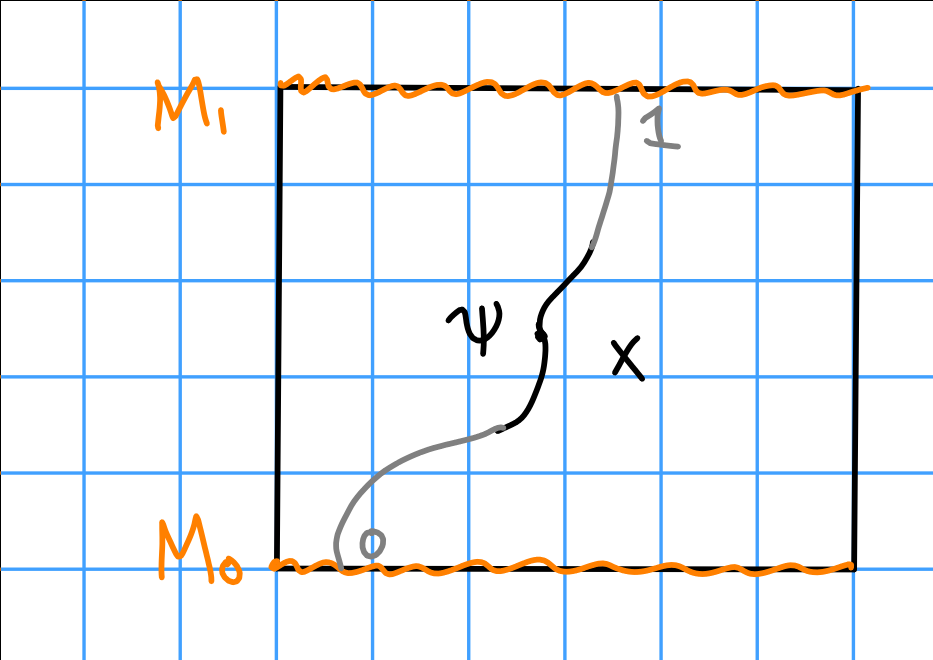 M₁
1
ψ
x
M₀
0